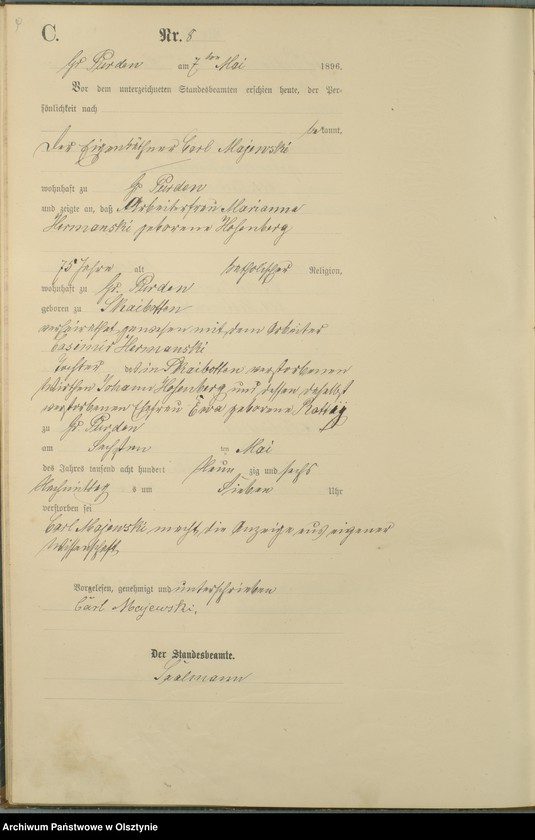 C.
Nr. 8
Gr Purden am 7ten Mai 1896.
Vor dem unterzeichneten Standesbeamten erschien heute, der Per-
sönlichkeit nach
bekannt,
der Eigenkäthner Carl Majewski
wohnhaft zu Gr Purden
und zeigte an, daß Arbeiterfrau Marianna
Hermanski geborene Hohenberg
75 Jahre alt katholischer Religion,
wohnhaft zu Gr. Purden
geboren zu Skaibotten
verheirathet gewesen mit dem Arbeiter
Casimir Hermanski
Tochter des in Skaibotten verstorbenen
Wirthen Johann Hohenberg und dessen daselbst
verstorbenen Ehefrau Ewa geborene Rattay
zu Gr. Purden
am Sechsten ten Mai
des Jahres tausend acht hundert Neun zig und sechs
Nachmittag s um Sieben Uhr
verstorben sei
Carl Majewski macht die Anzeige aus eigener
Wissenschaft
Vorgelesen, genehmigt und unterschrieben
Carl Majewski.
Der Standesbeamte.
Archiwum Państwowe w Olsztynie